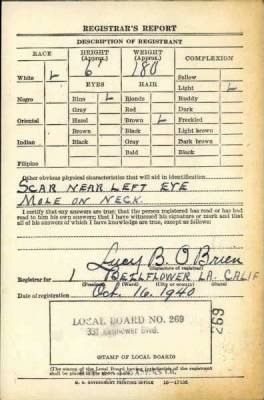 REGISTRAR'S REPORT
DESCRIPTION OF REGISTRANT
RACE HEIGHT (Approx.) WEIGHT (Approx.) COMPLEXION
6' 180
White Sallow
EYES HAIR Light
Negro Blue Blonde Ruddy
Gray Red Dark
Oriental Hazel Brown Freckled
Brown Black Light brown
Indian Black Gray Dark brown
Bald Black
Filipino
Other obvious physical characteristics that will aid in identification
SCAR NEAR LEFT EYE
MOLE ON NECK.
I certify that my answers are true; that the person registered has read or has had
read to him his own answers; that I have witnessed his signature or mark and that
all of his answers of which I have knowledge are true, except as follows:
Lucy B. O'Brien
(Signature of registrar)
Registrar for 1 BELLFLOWER LA. CALIF
(Precinct) (Ward) (City or county)
Date of registration Oct. 16, 1940
LOCAL BOARD NO. 269
269
STAMP OF LOCAL BOARD
(The stamp of the Local Board having jurisdiction of the registrant
shall be placed in the above space.)
U. S. GOVERNMENT PRINTING OFFICE 16—17105